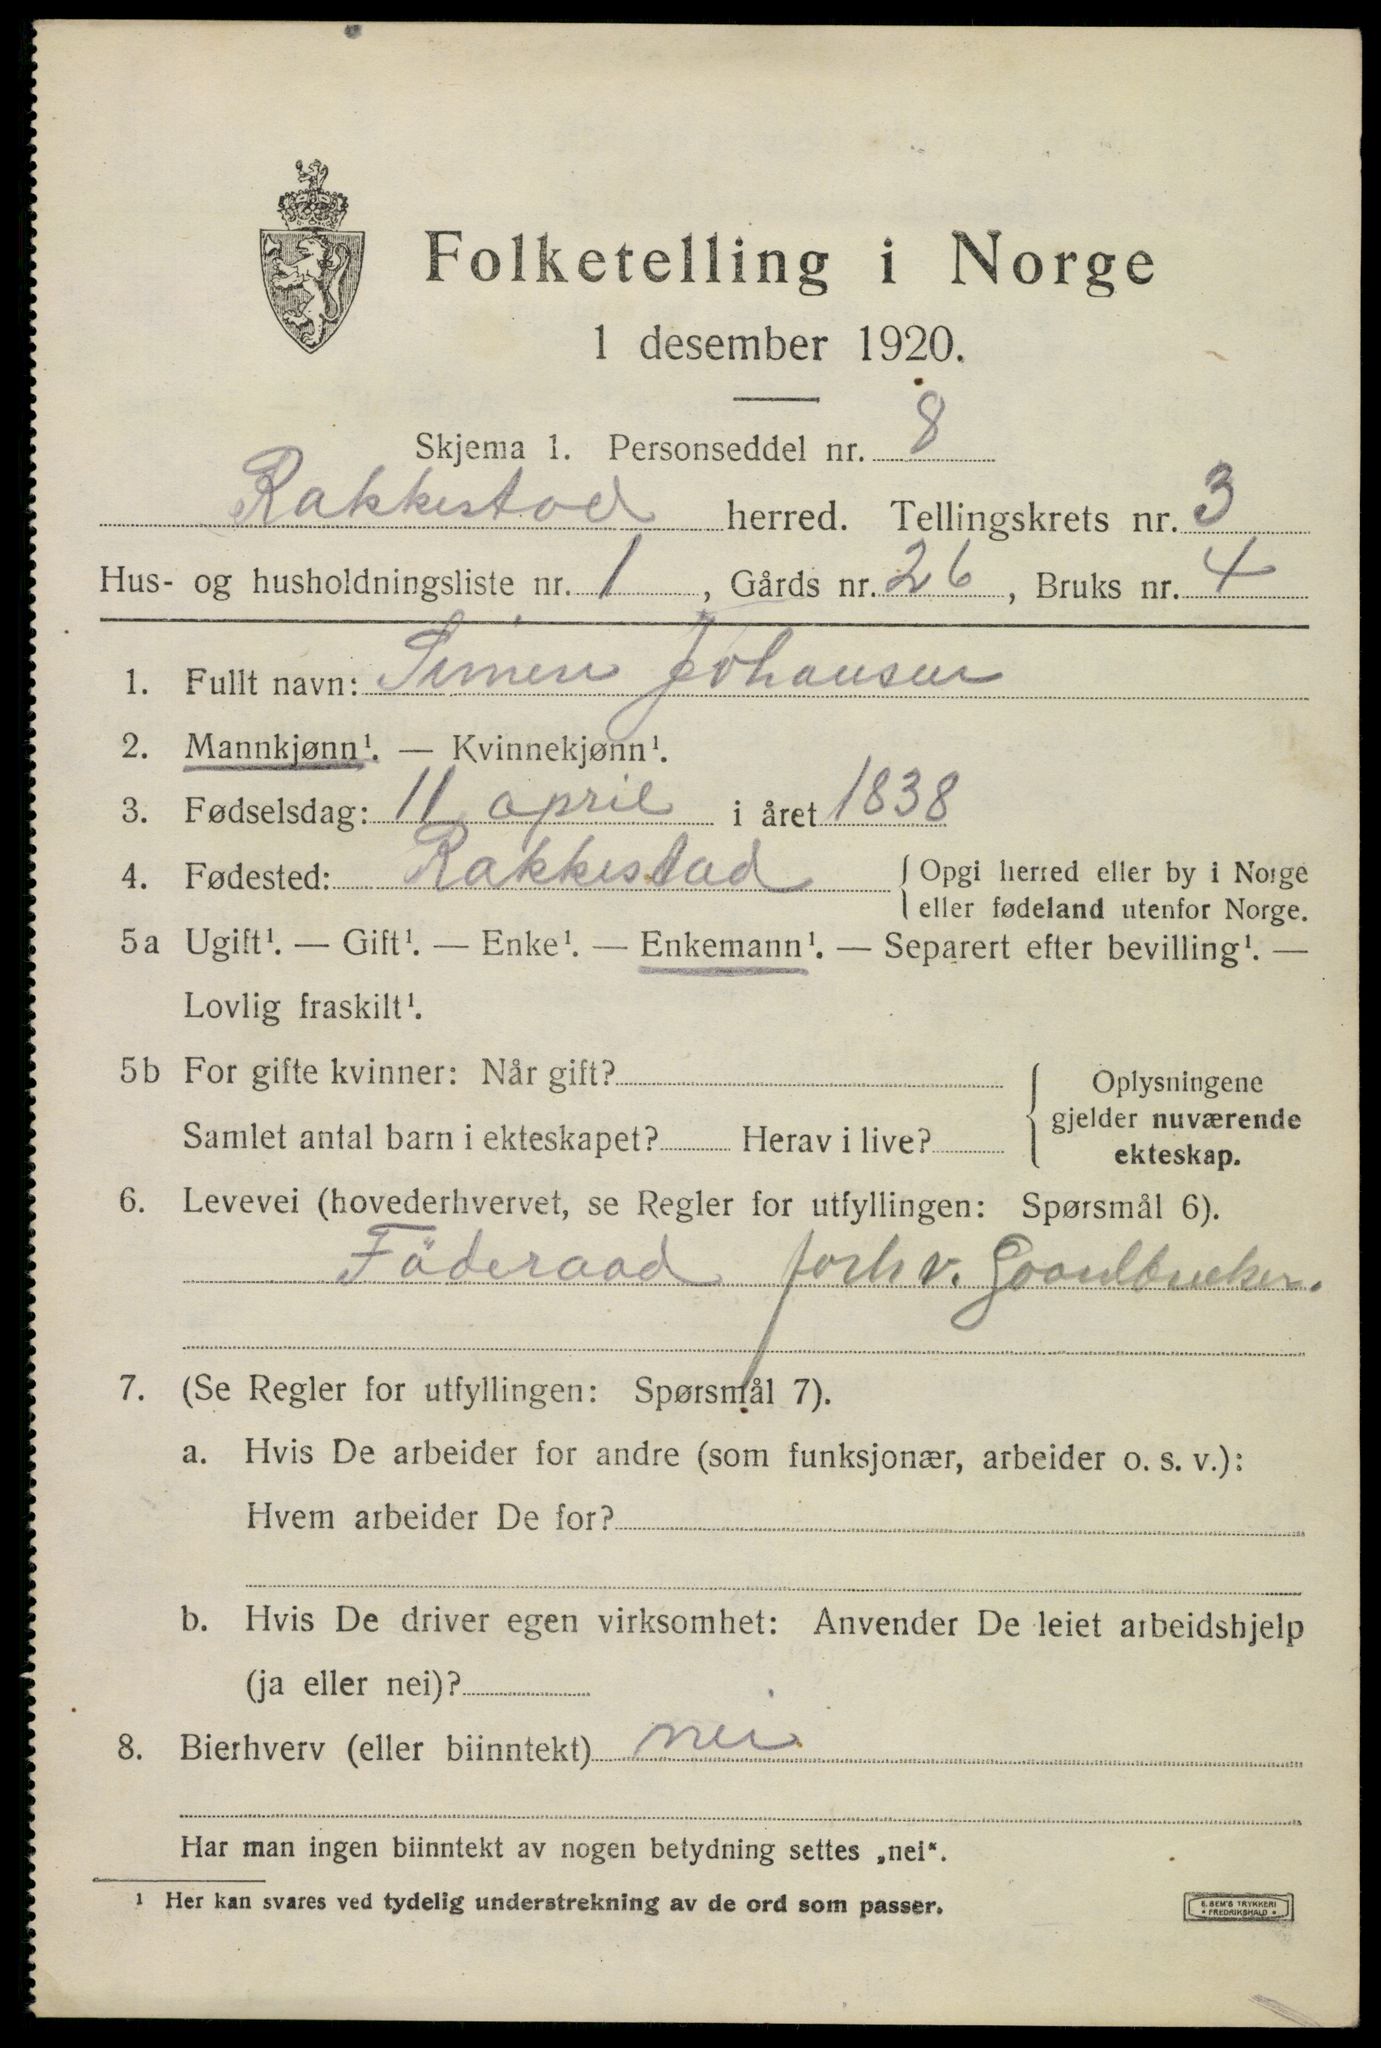 Folketelling i Norge
1 desember 1920.
Skjema 1. Personseddel nr. 8
Rakkestad herred. Tellingskrets nr. 3
Hus- og husholdningsliste nr. 1, Gårds nr. 26, Bruks nr. 4
1. Fullt navn: Simen Johansen
2. Mannkjønn¹. — Kvinnekjønn¹.
3. Fødselsdag: 11 april i året 1838
4. Fødested: Rakkestad { Opgi herred eller by i Norge
eller fødeland utenfor Norge.
5a Ugift¹. — Gift¹. — Enke¹. — Enkemann¹. — Separert efter bevilling¹. —
Lovlig fraskilt¹.
5b For gifte kvinner: Når gift?
Samlet antal barn i ekteskapet? Herav i live?
{ Oplysningene
gjelder nuværende
ekteskap.
6. Levevei (hovederhvervet, se Regler for utfyllingen: Spørsmål 6).
Föderaad forh v. Gaardbruker.
7. (Se Regler for utfyllingen: Spørsmål 7).
a. Hvis De arbeider for andre (som funksjonær, arbeider o. s. v.):
Hvem arbeider De for?
b. Hvis De driver egen virksomhet: Anvender De leiet arbeidshjelp
(ja eller nei)?
8. Bierhverv (eller biinntekt) nei
Har man ingen biinntekt av nogen betydning settes „nei“.
¹ Her kan svares ved tydelig understrekning av de ord som passer.
E. SEM'S TRYKKERI
* FREDRIKSHALD *